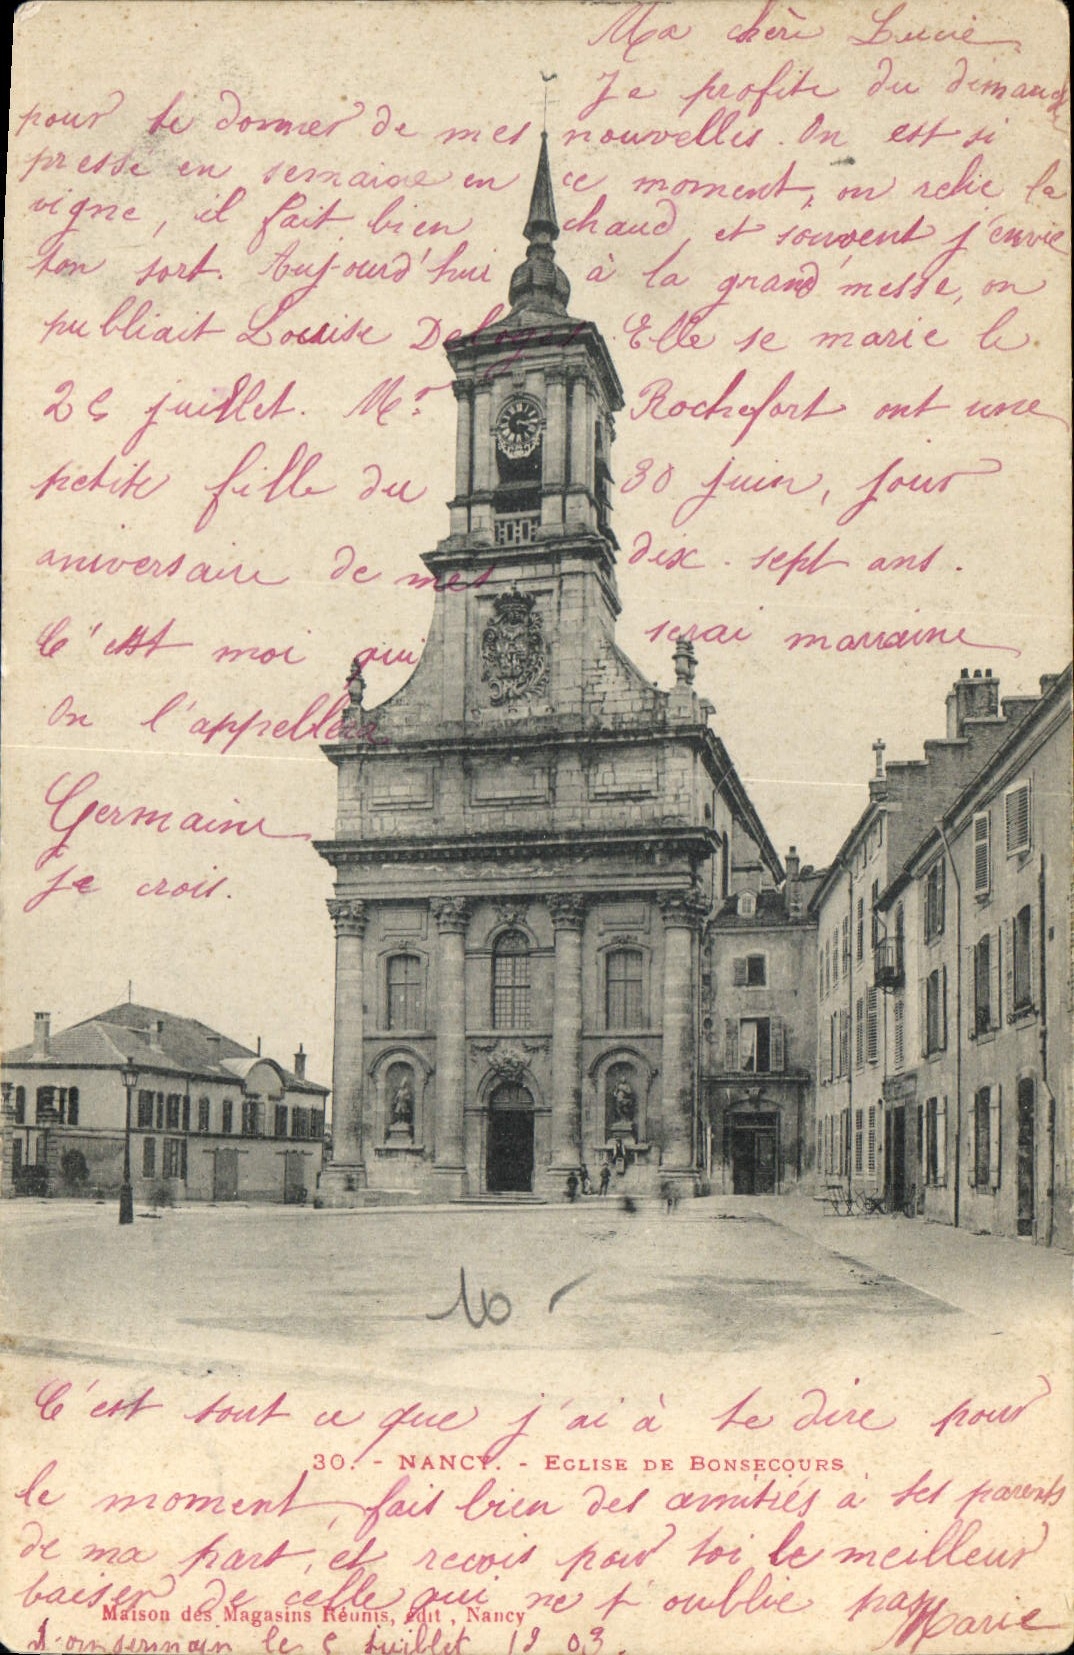 Ma chère Lucie
Je profite du dimanche
pour te donner de mes nouvelles. On est si
pressé en semaine en ce moment, on relie la
vigne, il fait bien chaud, et souvent j'envie
ton sort. Aujourd'hui à la grand'messe, on
publiait Louise Deloges. Elle se marie le
25 juillet. Mr Rochefort ont une
petite fille du 30 juin, jour
aniversaire de mes dix-sept ans.
C'est moi qui serai marraine
On l'appellera
Germaine
je crois.
10
C'est tout ce que j'ai à te dire pour
30. - NANCY. - EGLISE DE BONSECOURS
le moment, fais bien des amitiés à tes parents
de ma part, et reçois pour toi le meilleur
baiser de celle qui ne t'oublie pas
Maison des Magasins Réunis, édit, Nancy
Marie
le 5 juillet 1903.